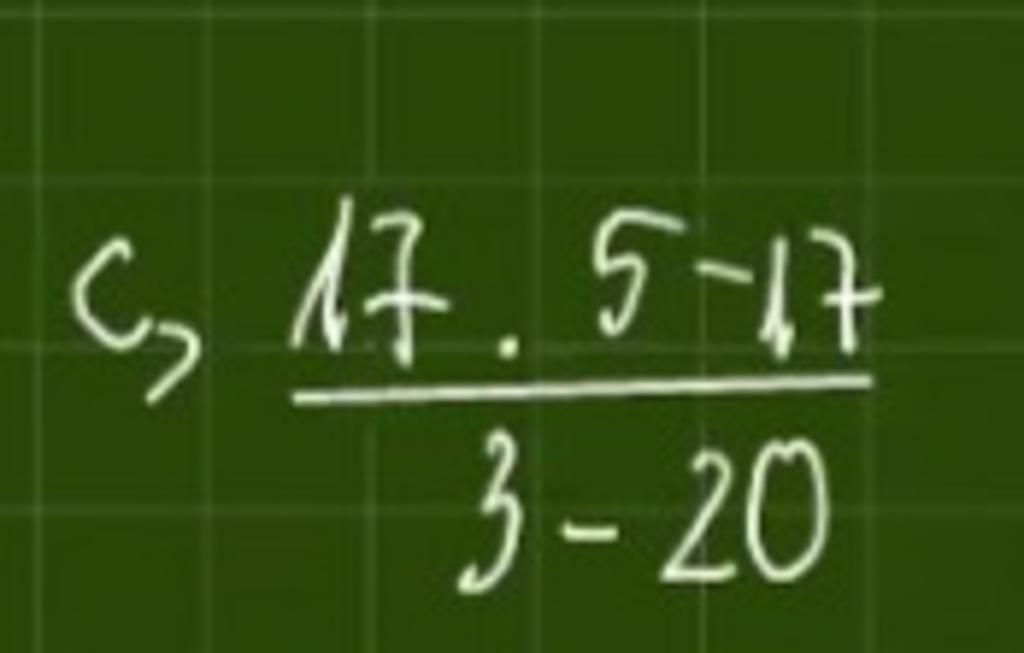 c, 17 . 5 - 17
3 - 20